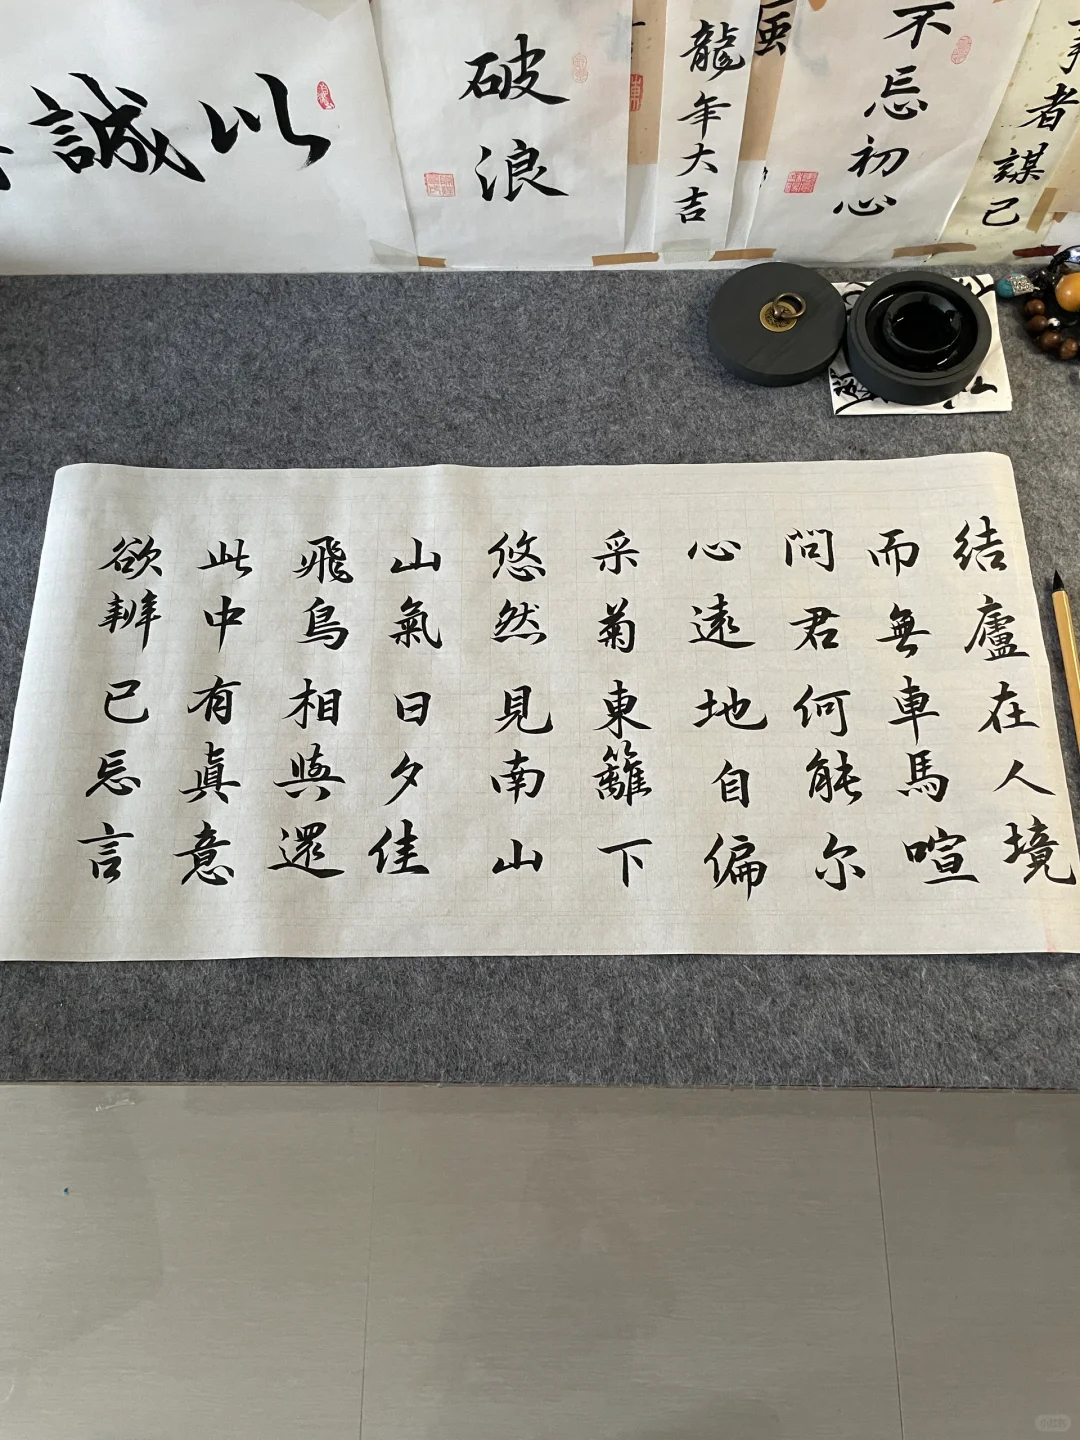 結廬在人境
而無車馬喧
問君何能尔
心遠地自偏
采菊東籬下
悠然見南山
山氣日夕佳
飛鳥相與還
此中有真意
欲辨已忘言
者謀己
不忘初心
龍年大吉
破浪
以誠